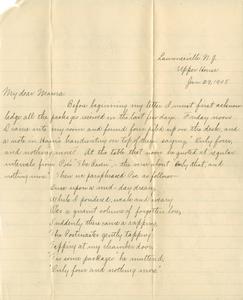 Lawrenceville N.J.
Upper House
Jan 29, 1905
My dear Mama
Before beginning my letter I must first acknow-
ledge all the packages received in the last few days. Friday noon
I came into my room and found four piled up on the desk, and
a note in Harry's handwriting on top of them saying "Only four,
and nothing more". At the table that noon he quoted at regular
intervals from Poe's "The Raven", only that, and
nothing more." Then we paraphrased Poe as follows
Once upon a mid-day dreary
While I pondered, weak and weary
O'er a quaint volume of forgotten lore,
Suddenly there came a rapping,
The Postmaster gently tapping
Tapping at my chamber door,
"Tis some packages" he muttered,
"Only four and nothing more".